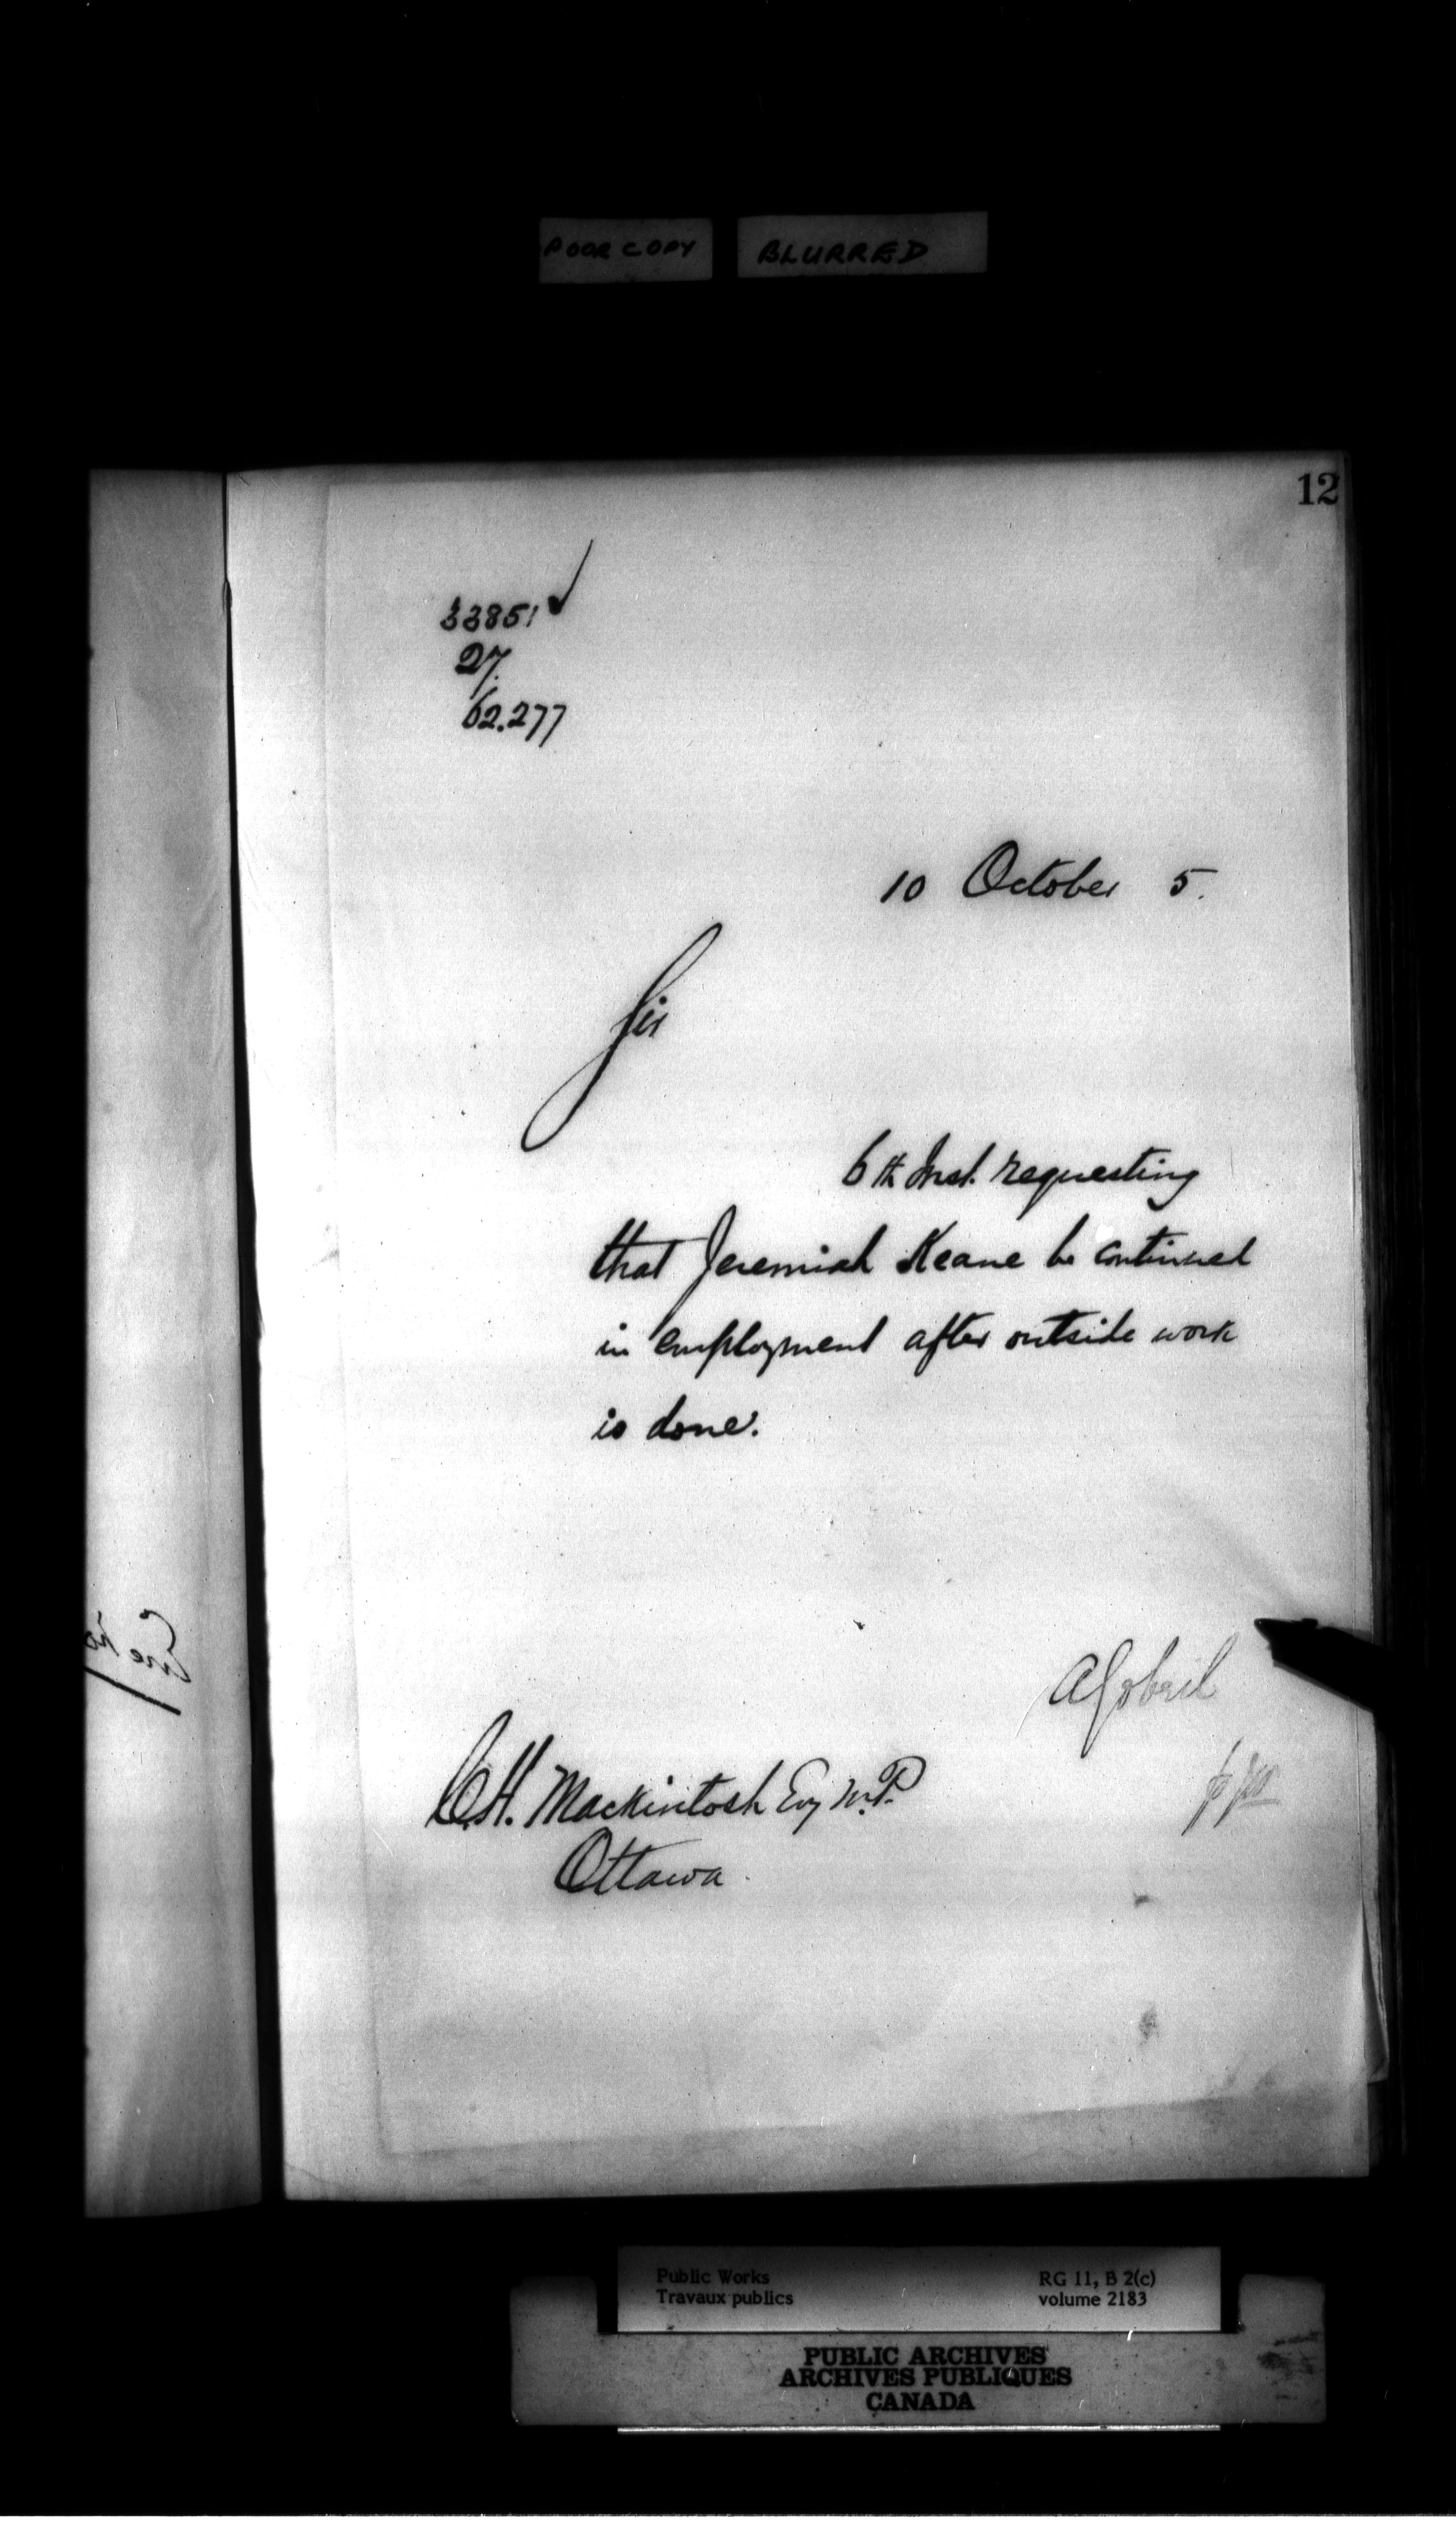 POOR COPY BLURRED
12
33851 ✓
27.
62.277
10 October 5.
Sir
6th Inst. requesting
that Jeremiah Keane be continued
in employment after outside work
is done.
AGobeil
C.H. Mackintosh Esq M.P.
Ottawa.
Public Works RG 11, B 2(c)
Travaux publics volume 2183
PUBLIC ARCHIVES
ARCHIVES PUBLIQUES
CANADA